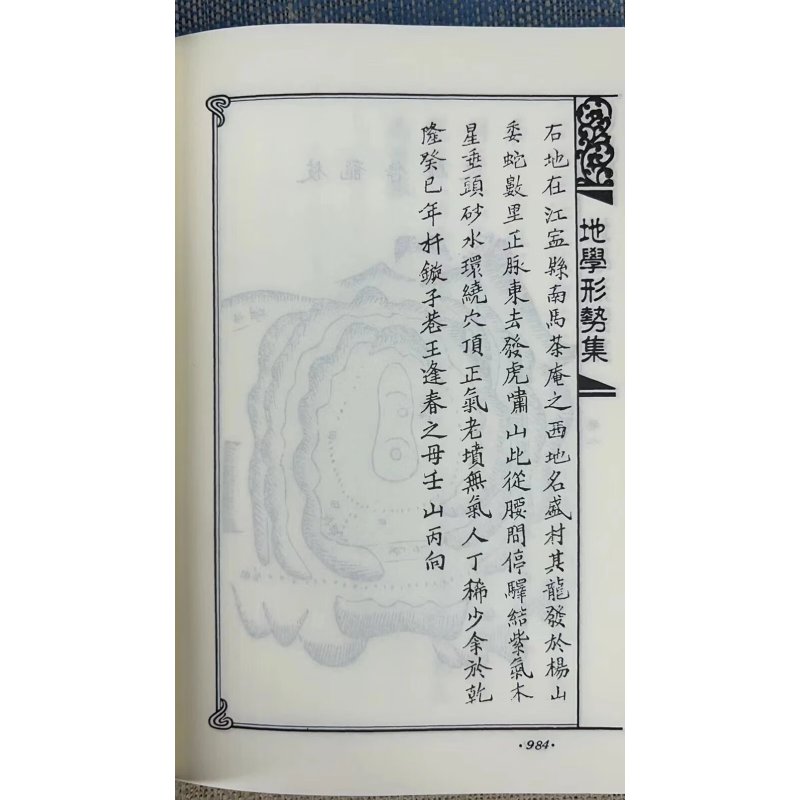 地學形勢集
右地在江寍縣南馬茶庵之西地名盛村其龍發於楊山
委蛇數里正脉東去發虎嘯山此從腰間停驛結紫氣木
星垂頭砂水環繞穴頂正氣老墳無氣人丁稀少余於乾
隆癸巳年扦鏇子巷王逢春之母壬山丙向
·984·